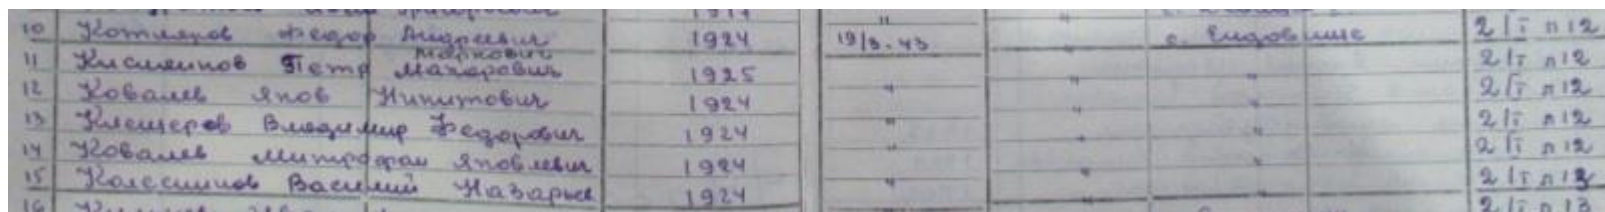 1924
10 Котляров Федор Андреевич 1924 19/3.43 с. Ендовище 2/I п12
Маркович
11 Кисленков Петр Макарович 1925 " " " 2/I п12
12 Ковалев Яков Никитович 1924 " " " 2/I п12
13 Клещеров Владимир Федорович 1924 " " " 2/I п12
14 Ковалев Митрофан Яковлевич 1924 " " " 2/I п12
15 Колесников Василий Назарьев 1924 " " " 2/I п13
16 2/I п13